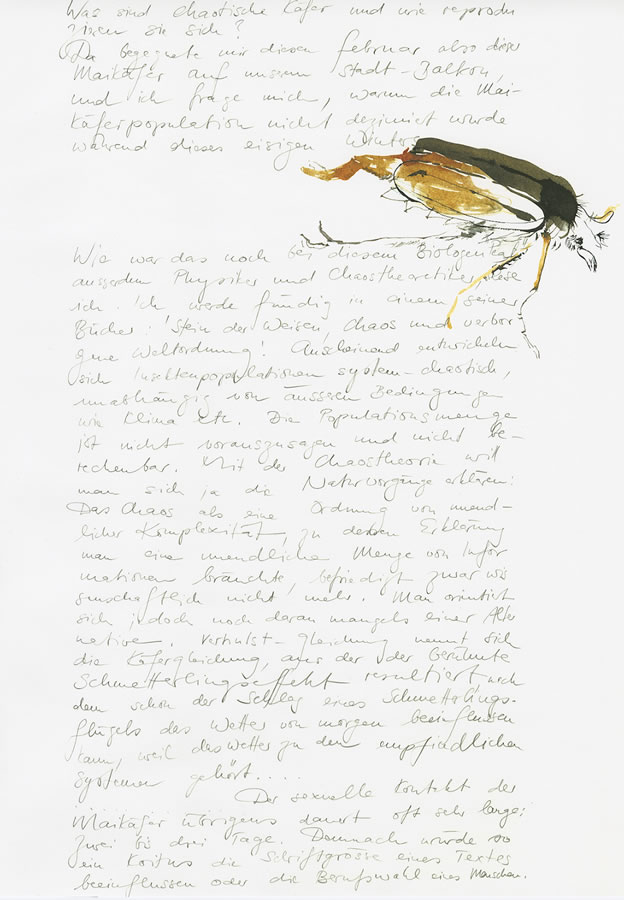 Was sind chaotische Käfer und wie reprodu
zieren sie sich?
Da begegnete mir diesen Februar also dieser
Maikäfer auf unserem Stadt-Balkon,
und ich frage mich, warum die Mai-
käferpopulation nicht dezimiert wurde
während dieses eisigen Winters
Wie war das noch bei diesem Biologen
ausserdem Physiker und Chaostheoretiker, lese
ich. Ich werde fündig in einem seiner
Bücher: 'Stein der Weisen, Chaos und verbor
gene Weltordnung'. Anscheinend entwickeln
sich Insektenpopulationen system-chaotisch,
unabhängig von äusseren Bedingungen
wie Klima etc. Die Populationsmenge
ist nicht vorauszusagen und nicht be-
rechenbar. Mit der Chaostheorie will
man sich ja die Naturvorgänge erklären:
Das Chaos als eine Ordnung von unend-
licher Komplexität, zu deren Erklärung
man eine unendliche Menge von Infor
mationen bräuchte, befriedigt zwar wis
senschaftlich nicht mehr. Man orientiert
sich jedoch noch daran mangels einer Alter
native. Verhulst-Gleichung nennt sich
die Käfergleichung, aus der der berühmte
Schmetterlingseffekt resultiert, nach
dem schon der Schlag eines Schmetterlings-
flügels das Wetter von morgen beeinflussen
kann, weil das Wetter zu den empfindlichen
Systemen gehört....
Der sexuelle Kontakt der
Maikäfer übrigens dauert oft sehr lange:
Zwei bis drei Tage. Demnach würde so
ein Koitus die Schriftgrösse eines Textes
beeinflussen oder die Berufswahl eines Menschen.